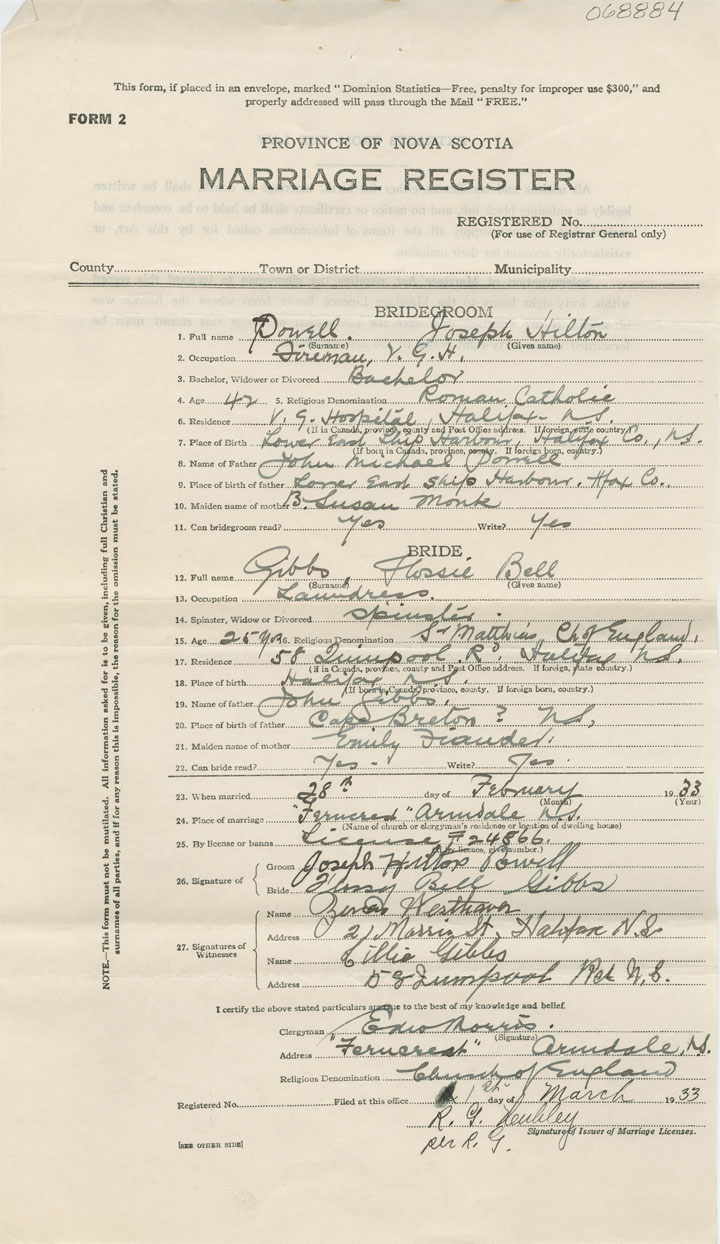 068884
This form, if placed in an envelope, marked "Dominion Statistics—Free, penalty for improper use $300," and
properly addressed will pass through the Mail "FREE."
FORM 2
PROVINCE OF NOVA SCOTIA
MARRIAGE REGISTER
REGISTERED No.
(For use of Registrar General only)
County Town or District Municipality
BRIDEGROOM
1. Full name Powell. Joseph Hilton
(Surname) (Given name)
2. Occupation Fireman, V. G. H.
3. Bachelor, Widower or Divorced Bachelor
4. Age 42 5. Religious Denomination Roman Catholic
6. Residence V. G. Hospital, Halifax- N.S.
(If in Canada, province, county and Post Office address. If foreign, state country.)
7. Place of Birth Lower East Ship Harbour, Halifax Co., N.S.
(If born in Canada, province, county. If foreign born, country.)
8. Name of Father John Michael Powell
9. Place of birth of father Lower East Ship Harbour. Hfax Co.
10. Maiden name of mother B. Susan Monk
11. Can bridegroom read? Yes Write? Yes
BRIDE
12. Full name Gibbs, Flossie Bell
(Surname) (Given name)
13. Occupation Laundress.
14. Spinster, Widow or Divorced Spinster.
15. Age 25 Yrs 16. Religious Denomination St Matthias, Ch of England,
17. Residence 58 Quinpool Rd, Halifax N.S.
(If in Canada, province, county and Post Office address. If foreign, state country.)
18. Place of birth Halifax N.S.
(If born in Canada, province, county. If foreign born, country.)
19. Name of father John Gibbs.
20. Place of birth of father Cape Breton? N.S,
21. Maiden name of mother Emily
22. Can bride read? Yes- Write? Yes.
23. When married 28th day of February 1933
(Month) (Year)
24. Place of marriage "Ferncrest" Armdale N.S.
(Name of church or clergyman's residence or location of dwelling house)
25. By license or banns License #24866.
(If by licence, give number.)
26. Signature of Groom Joseph Hilton Powell
Bride Flossy Bell Gibbs
27. Signatures of Witnesses
Name Westhaver
Address 21 Morris St, Halifax N.S
Name Gibbs
Address 58 Quinpool Rd N.S.
I certify the above stated particulars are true to the best of my knowledge and belief.
Clergyman Morris.
(Signature)
Address "Ferncrest" Armdale, N.S.
Religious Denomination Church of England
Registered No. Filed at this office 1st day of March 1933
R. G.
Signature of Issuer of Marriage Licenses.
per R. G.
[SEE OTHER SIDE]
NOTE.—This form must not be mutilated. All information asked for is to be given, including full Christian and
surnames of all parties, and if for any reason this is impossible, the reason for the omission must be stated.